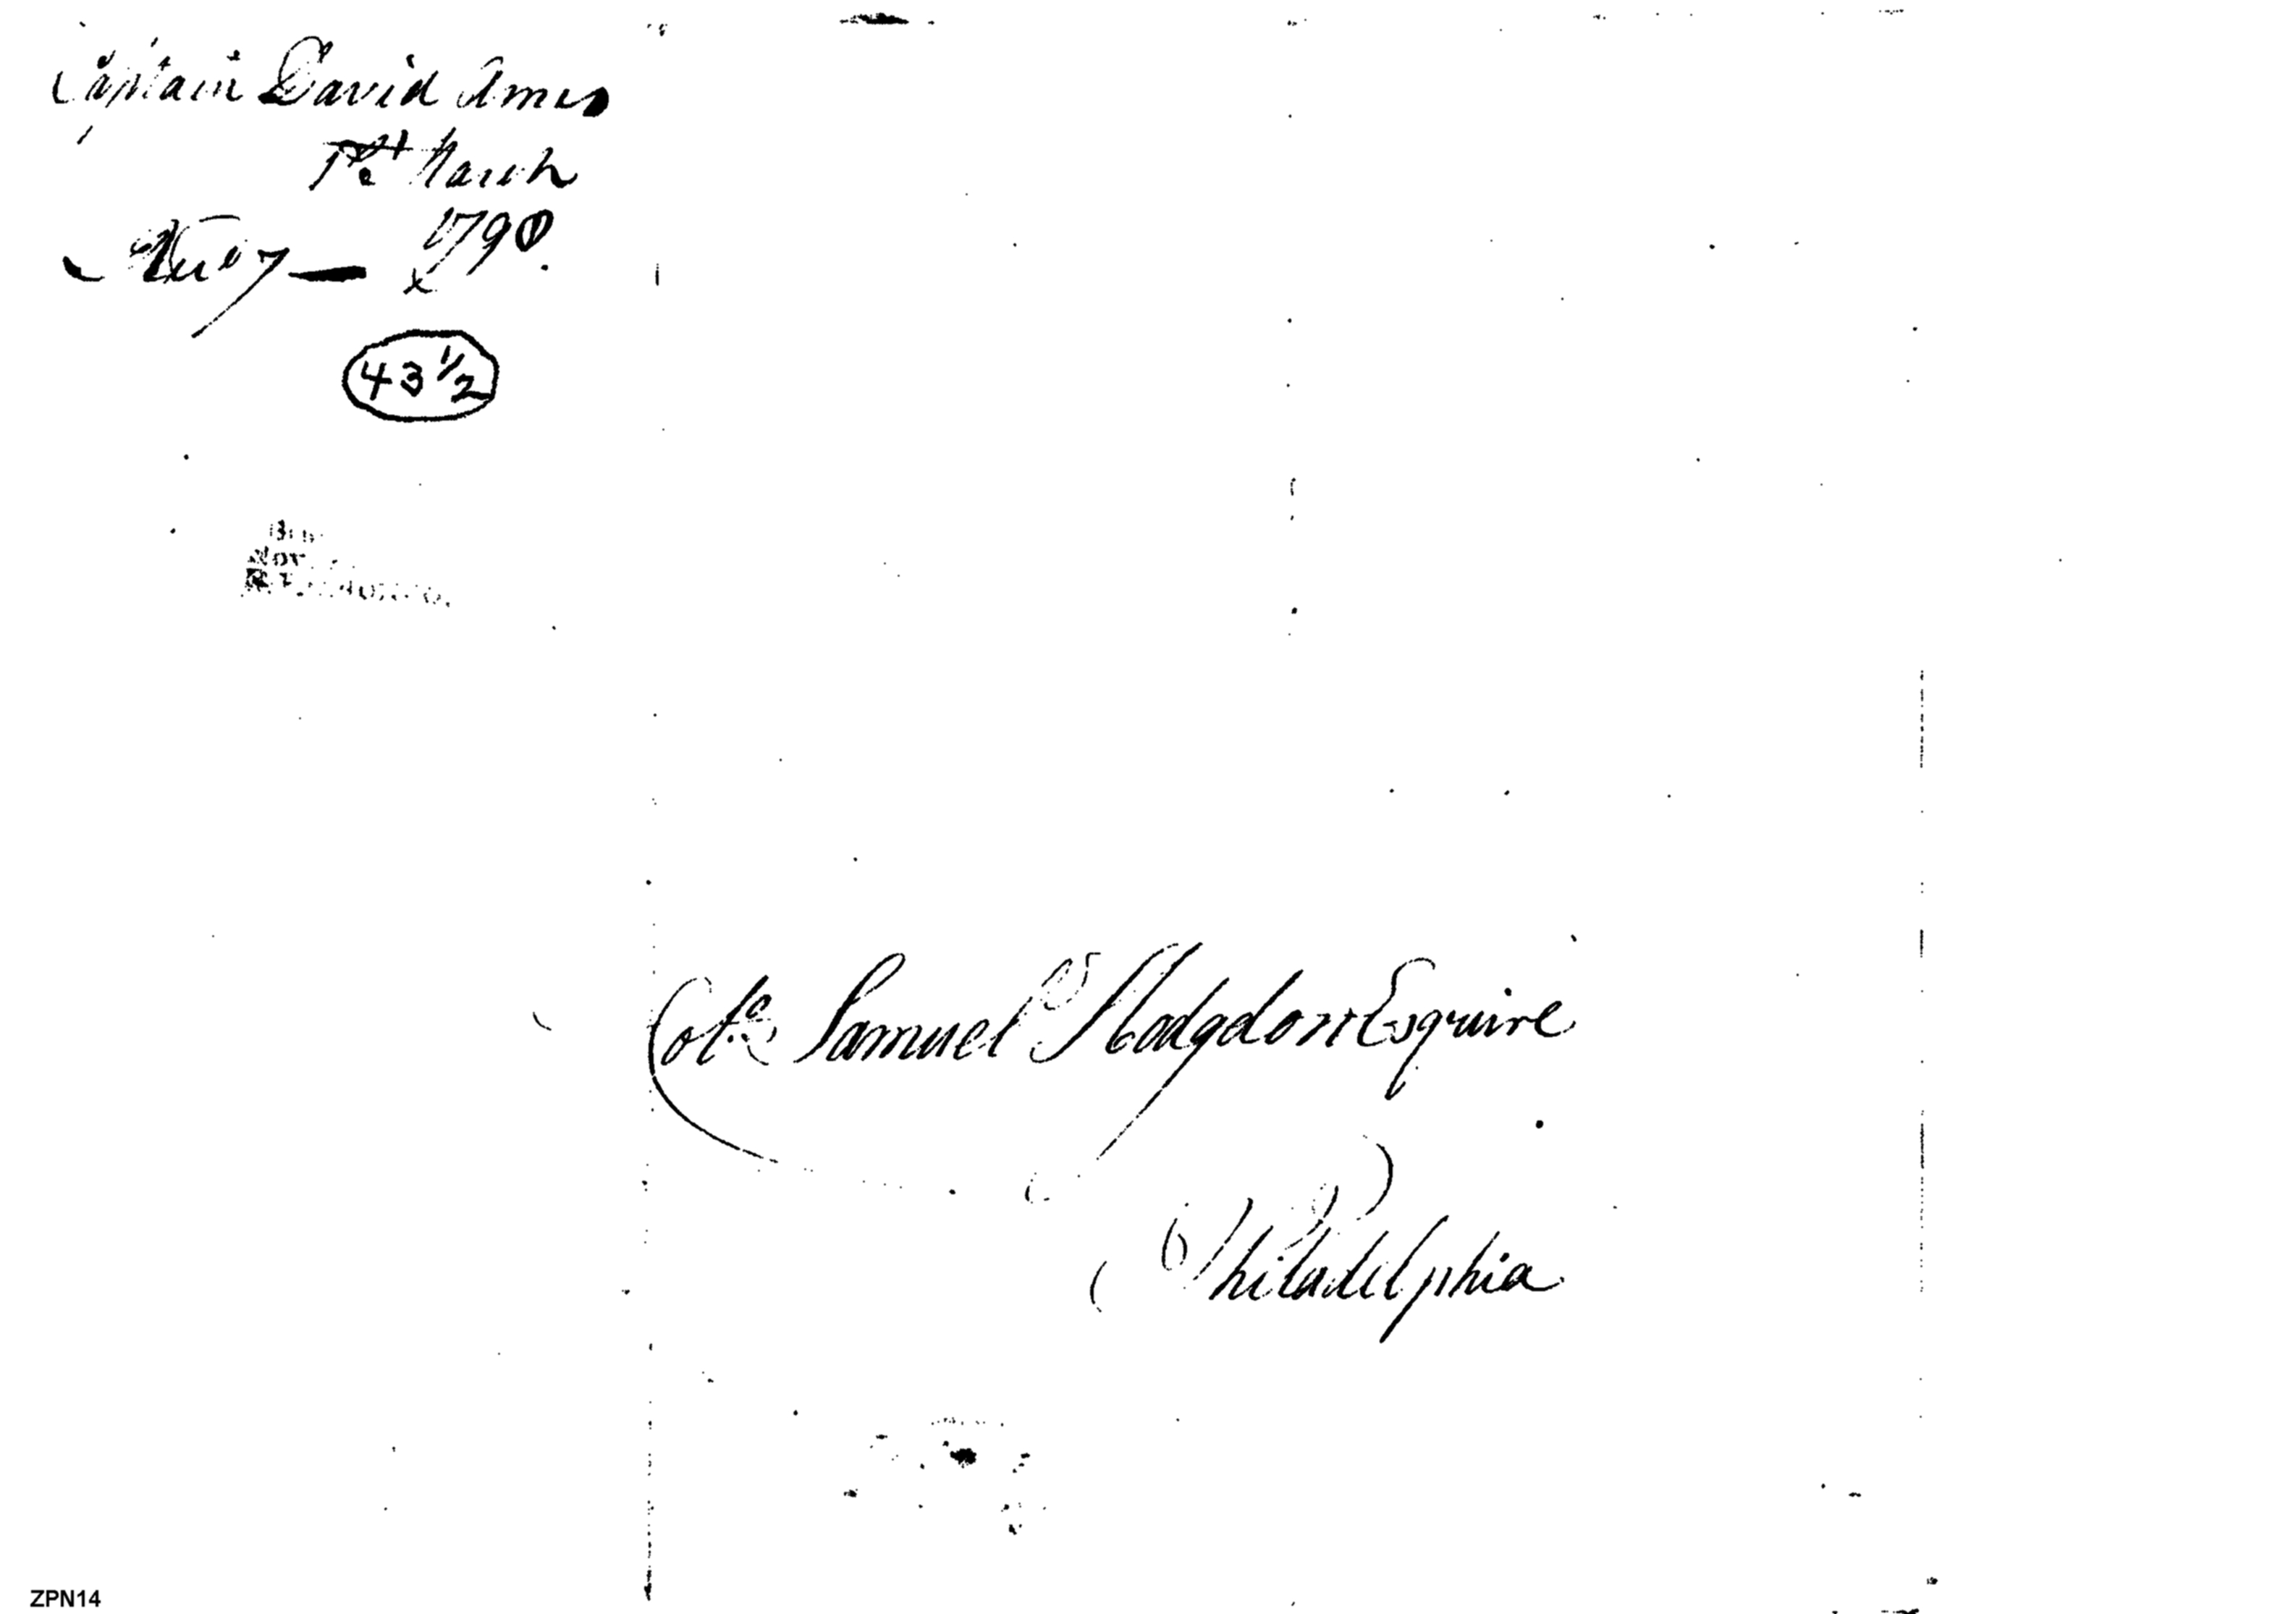 Captain David Ames
1st March
1798.
43 1/2
Colo. Samuel Hodgdon Esquire
Philadelphia
ZPN14